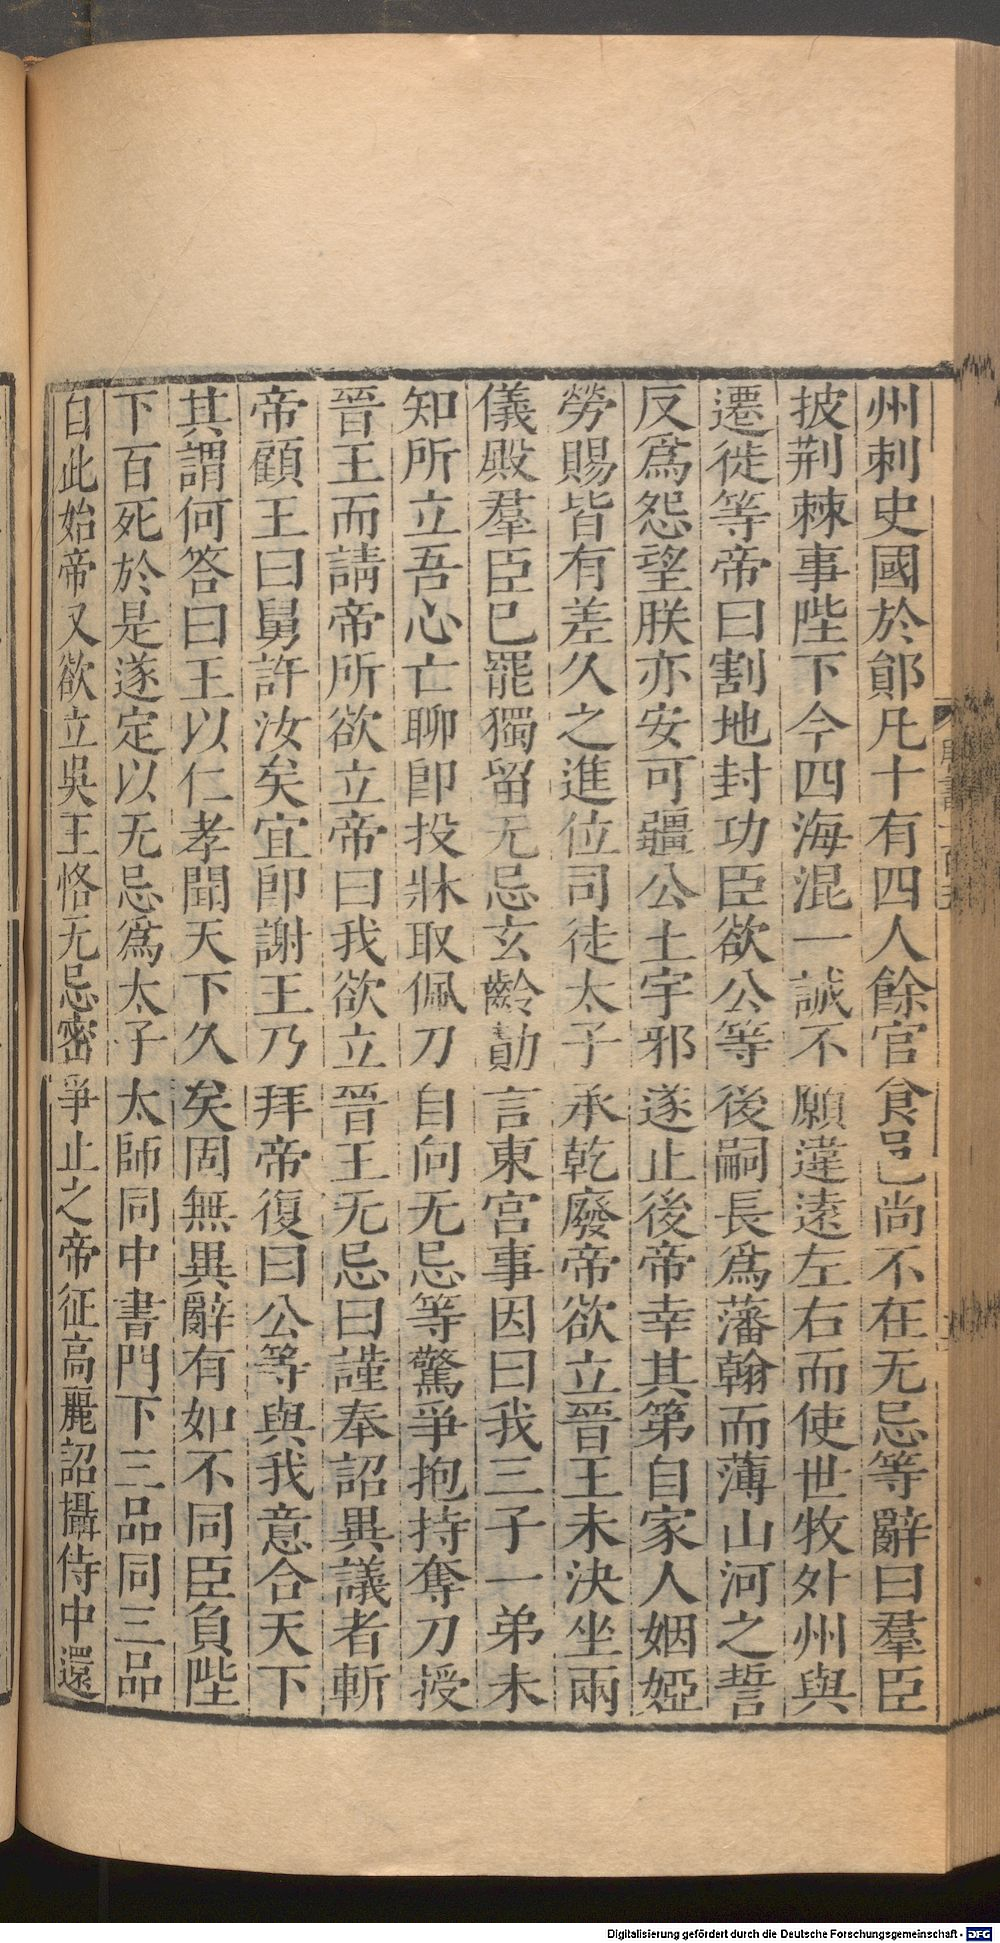 州刺史國於鄖凡十有四人餘官食邑尚不在无忌等辭曰羣臣
披荆棘事陛下今四海混一誠不願違遠左右而使世牧外州與
遷徙等帝曰割地封功臣欲公等後嗣長爲藩翰而薄山河之誓
反爲怨望朕亦安可疆公土宇邪遂止後帝幸其第自家人姻婭
勞賜皆有差久之進位司徒太子承乾廢帝欲立晉王未決坐兩
儀殿羣臣已罷獨留无忌玄齡勣言東宮事因曰我三子一弟未
知所立吾心亡聊卽投牀取佩刀自向无忌等驚爭抱持奪刀授
晉王而請帝所欲立帝曰我欲立晉王无忌曰謹奉詔異議者斬
帝顧王曰舅許汝矣宜卽謝王乃拜帝復曰公等與我意合天下
其謂何答曰王以仁孝聞天下久矣固無異辭有如不同臣負陛
下百死於是遂定以无忌爲太子太師同中書門下三品同三品
自此始帝又欲立吳王恪无忌密爭止之帝征高麗詔攝侍中還
Digitalisierung gefördert durch die Deutsche Forschungsgemeinschaft - DFG